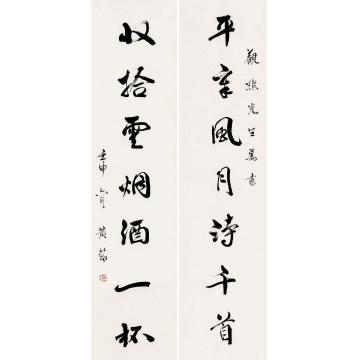 觀 先生属書
平章風月詩千首
收拾雲烟酒一杯
壬申六月 黄節